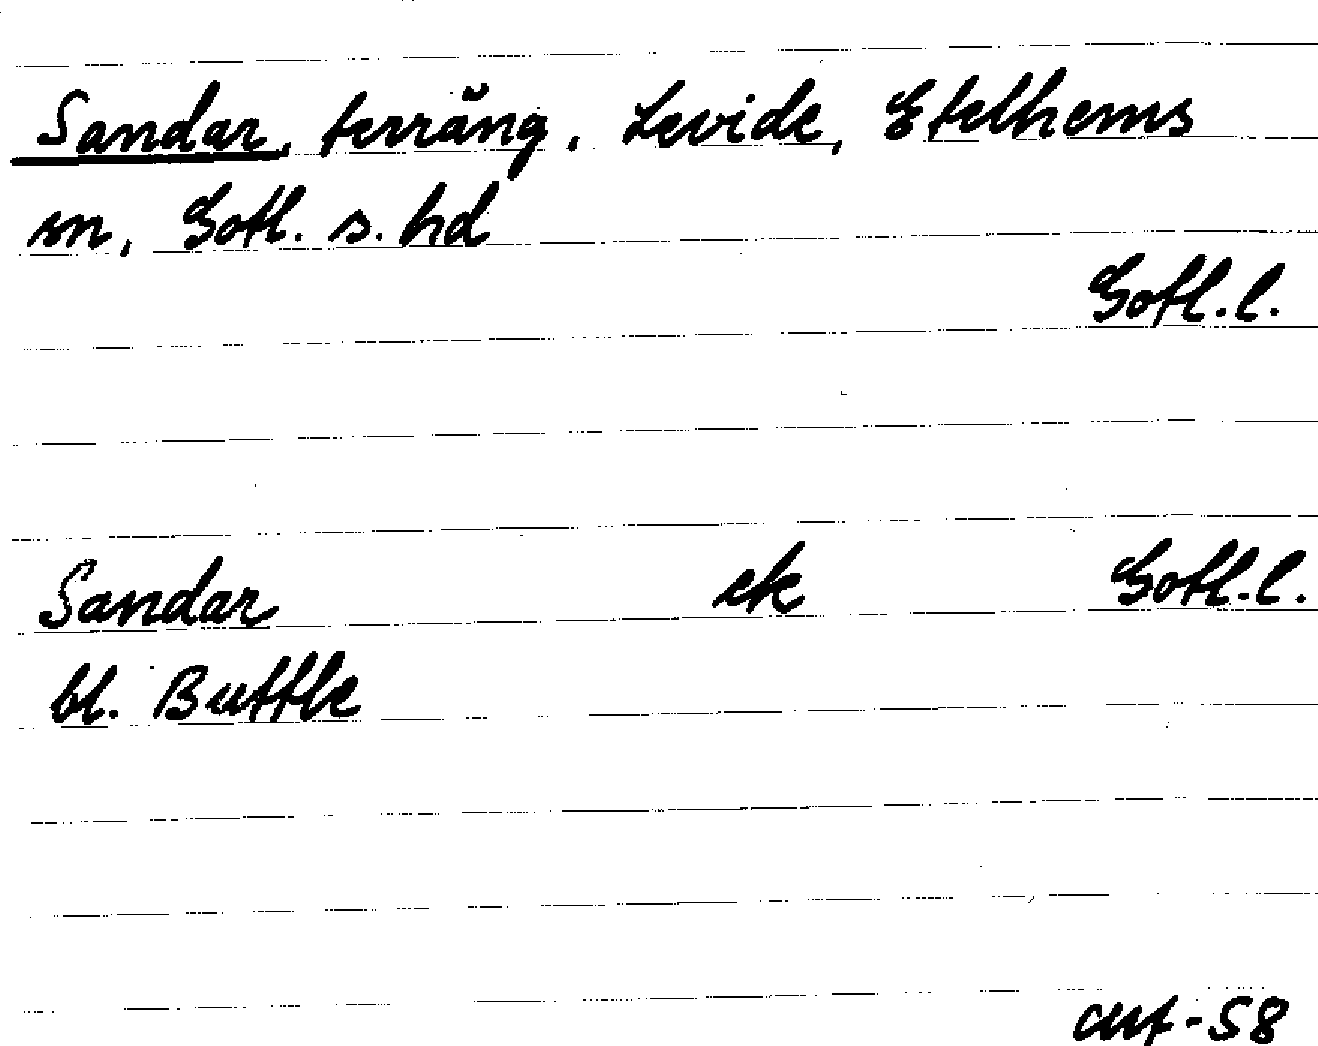 Sandar, terräng, Levide, Etelhems
sn, Gotl. s. hd
Gotl. l.
Sandar ek Gotl. l.
bl. Buttle
-58